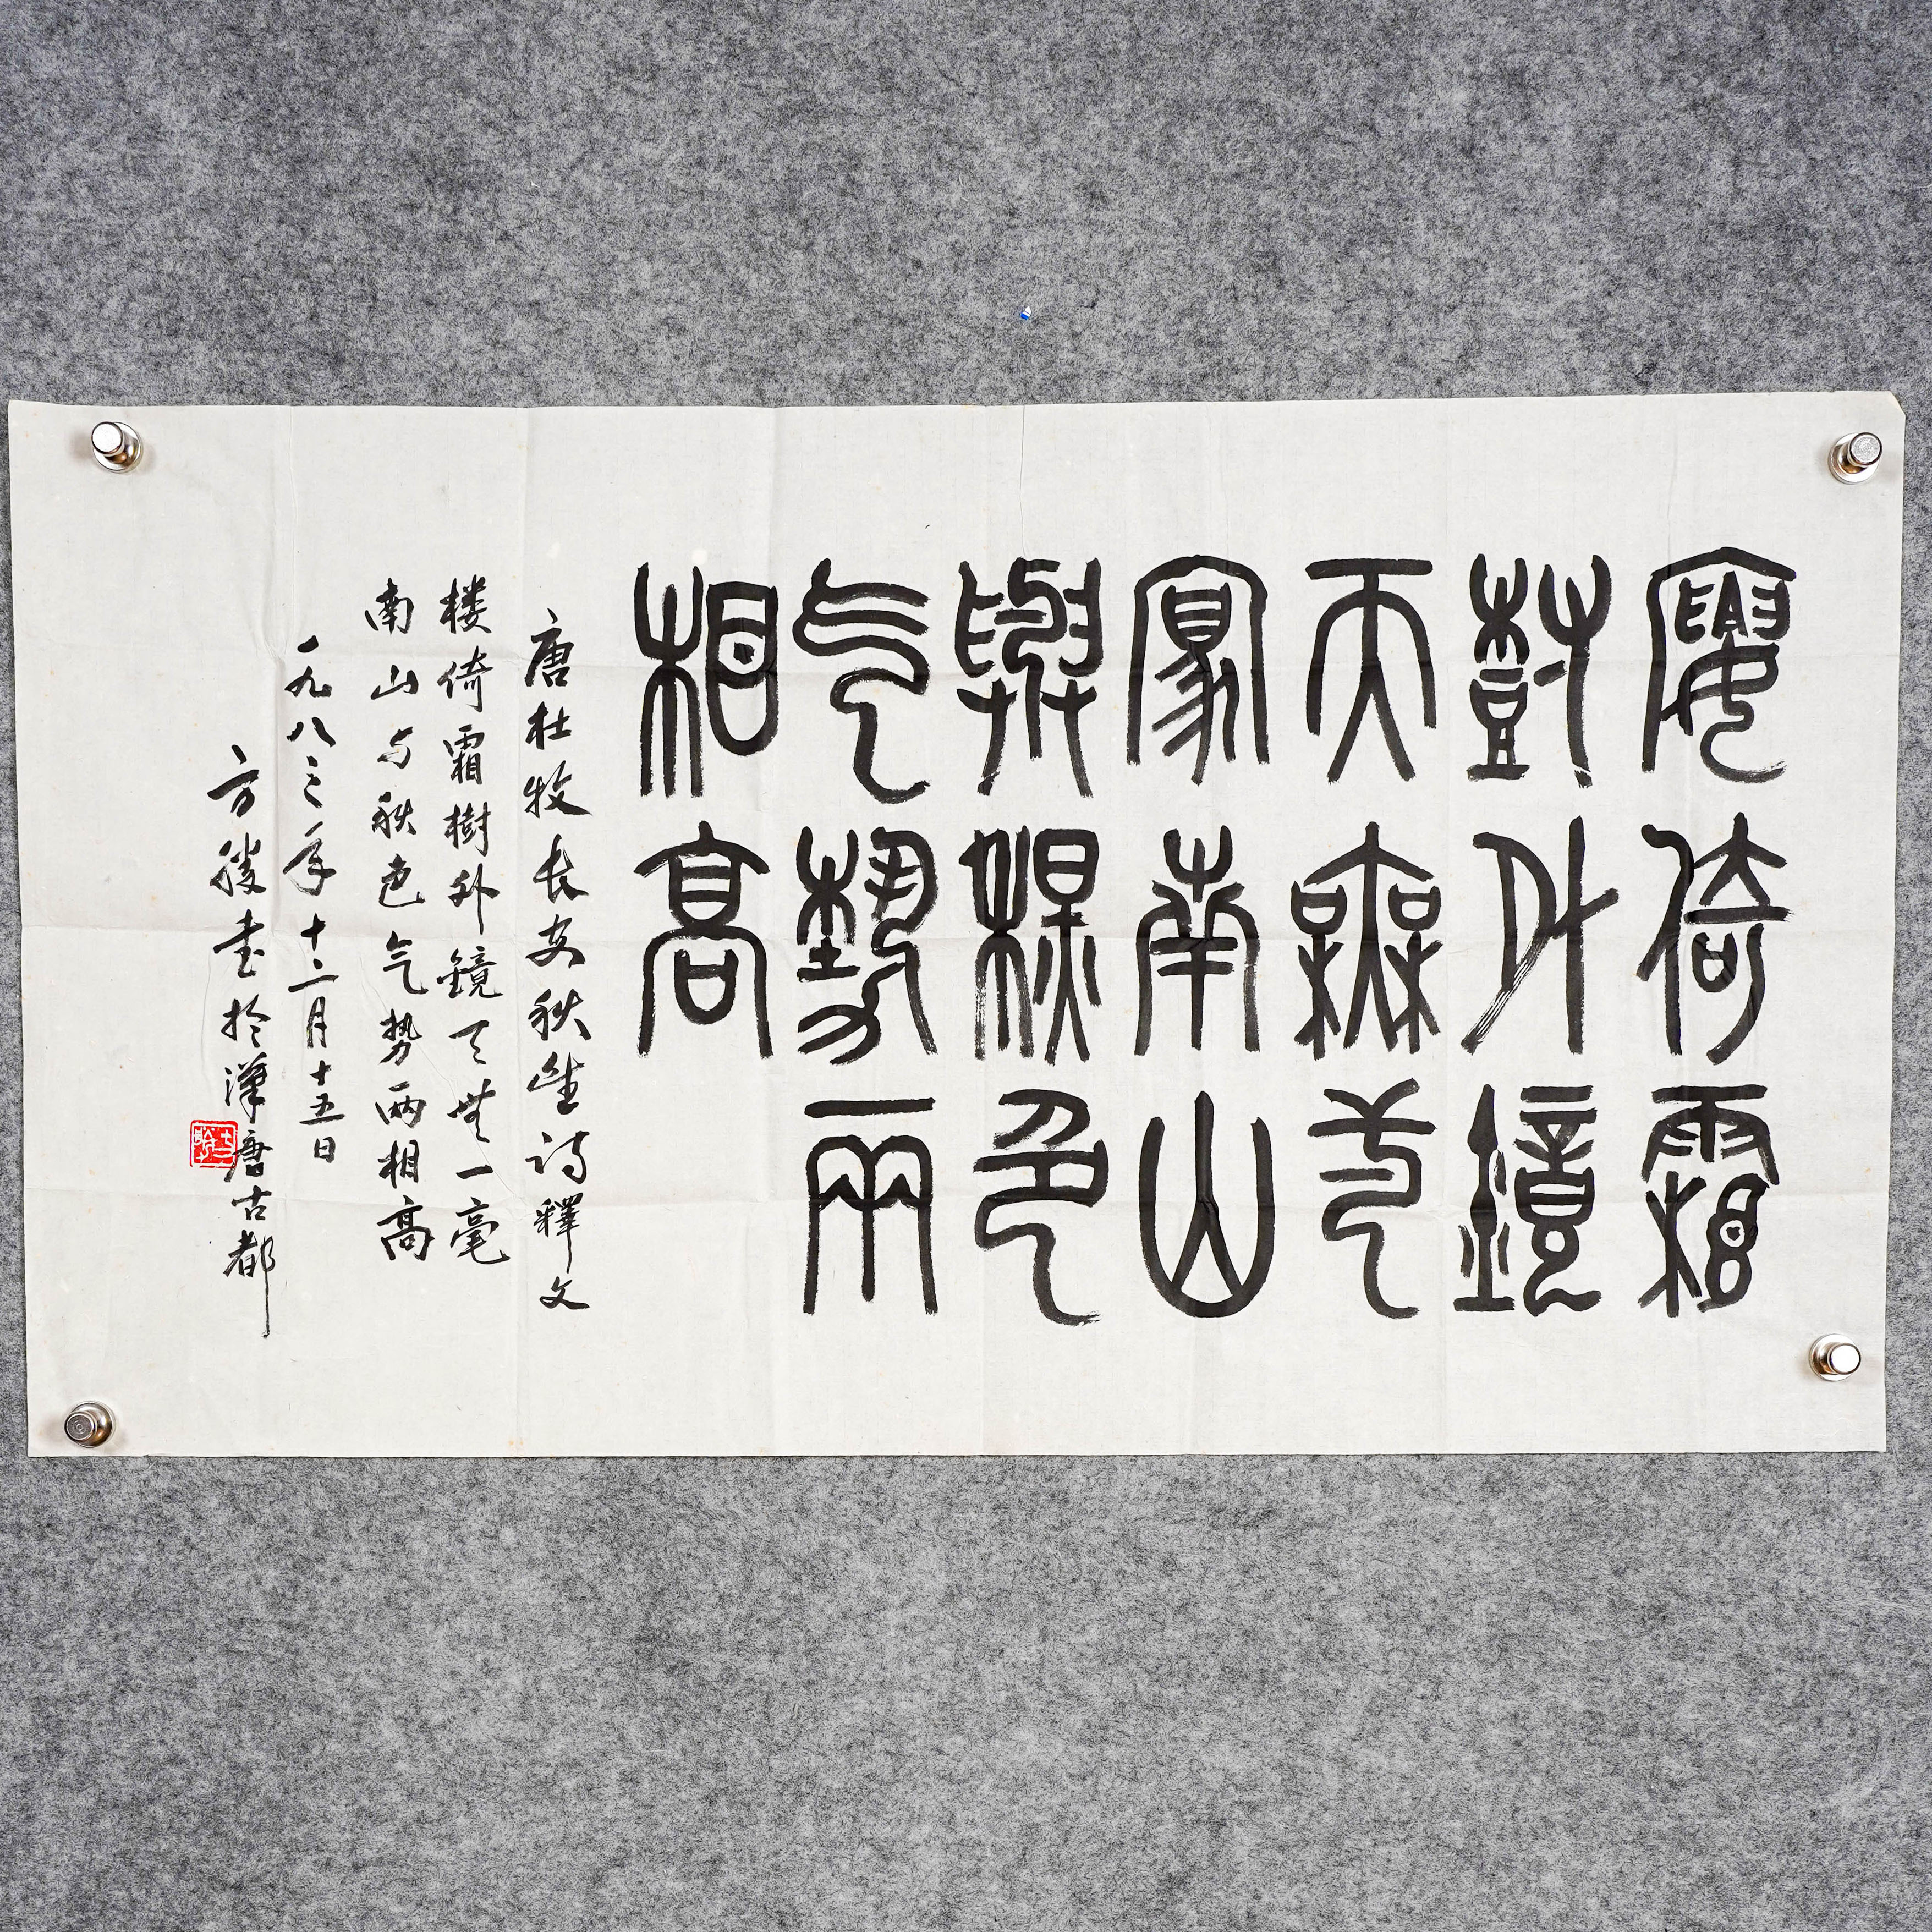 樓倚霜
樹外鏡
天無一
毫南山
與秋色
气勢兩
相高
唐杜牧长安秋望诗釋文
楼倚霜樹外鏡天無一毫
南山与秋色气势两相高
一九八三年十二月十五日
方勝書於漢唐古都